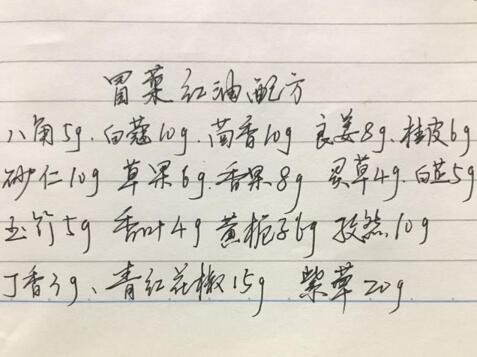 冒菜红油配方
八角5g、白蔻10g、茴香10g 良姜8g、桂皮6g
砂仁10g 草果6g、香果8g 灵草4g、白芷5g
玉竹5g 香叶4g 黄栀子6g 孜然10g
丁香3g、青红花椒15g 紫草20g